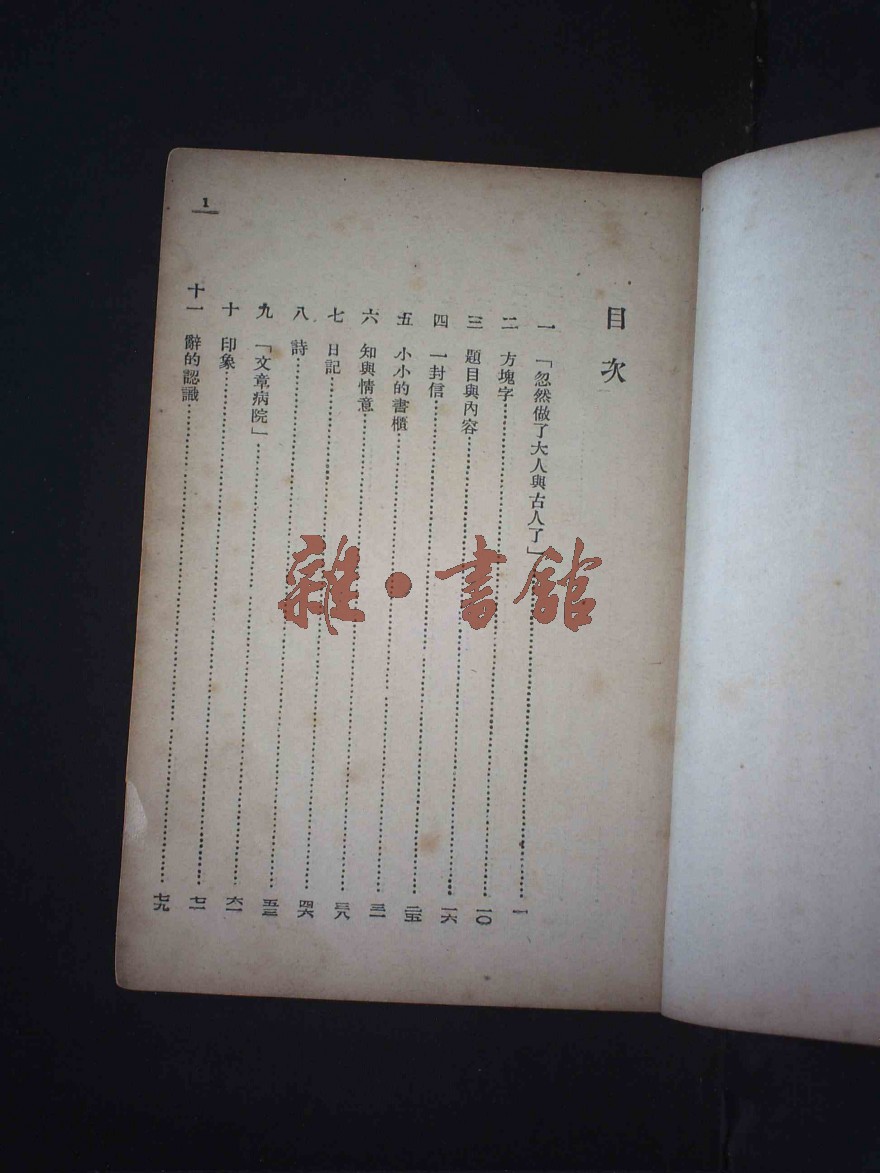 目次
一 「忽然做了大人與古人了」……一
二 方塊字……一〇
三 題目與內容……一六
四 一封信……二五
五 小小的書櫃……三一
六 知與情意……三八
七 日記……四六
八 詩……五三
九 「文章病院」……六一
十 印象……七一
十一 辭的認識……七九
1
雜·書館